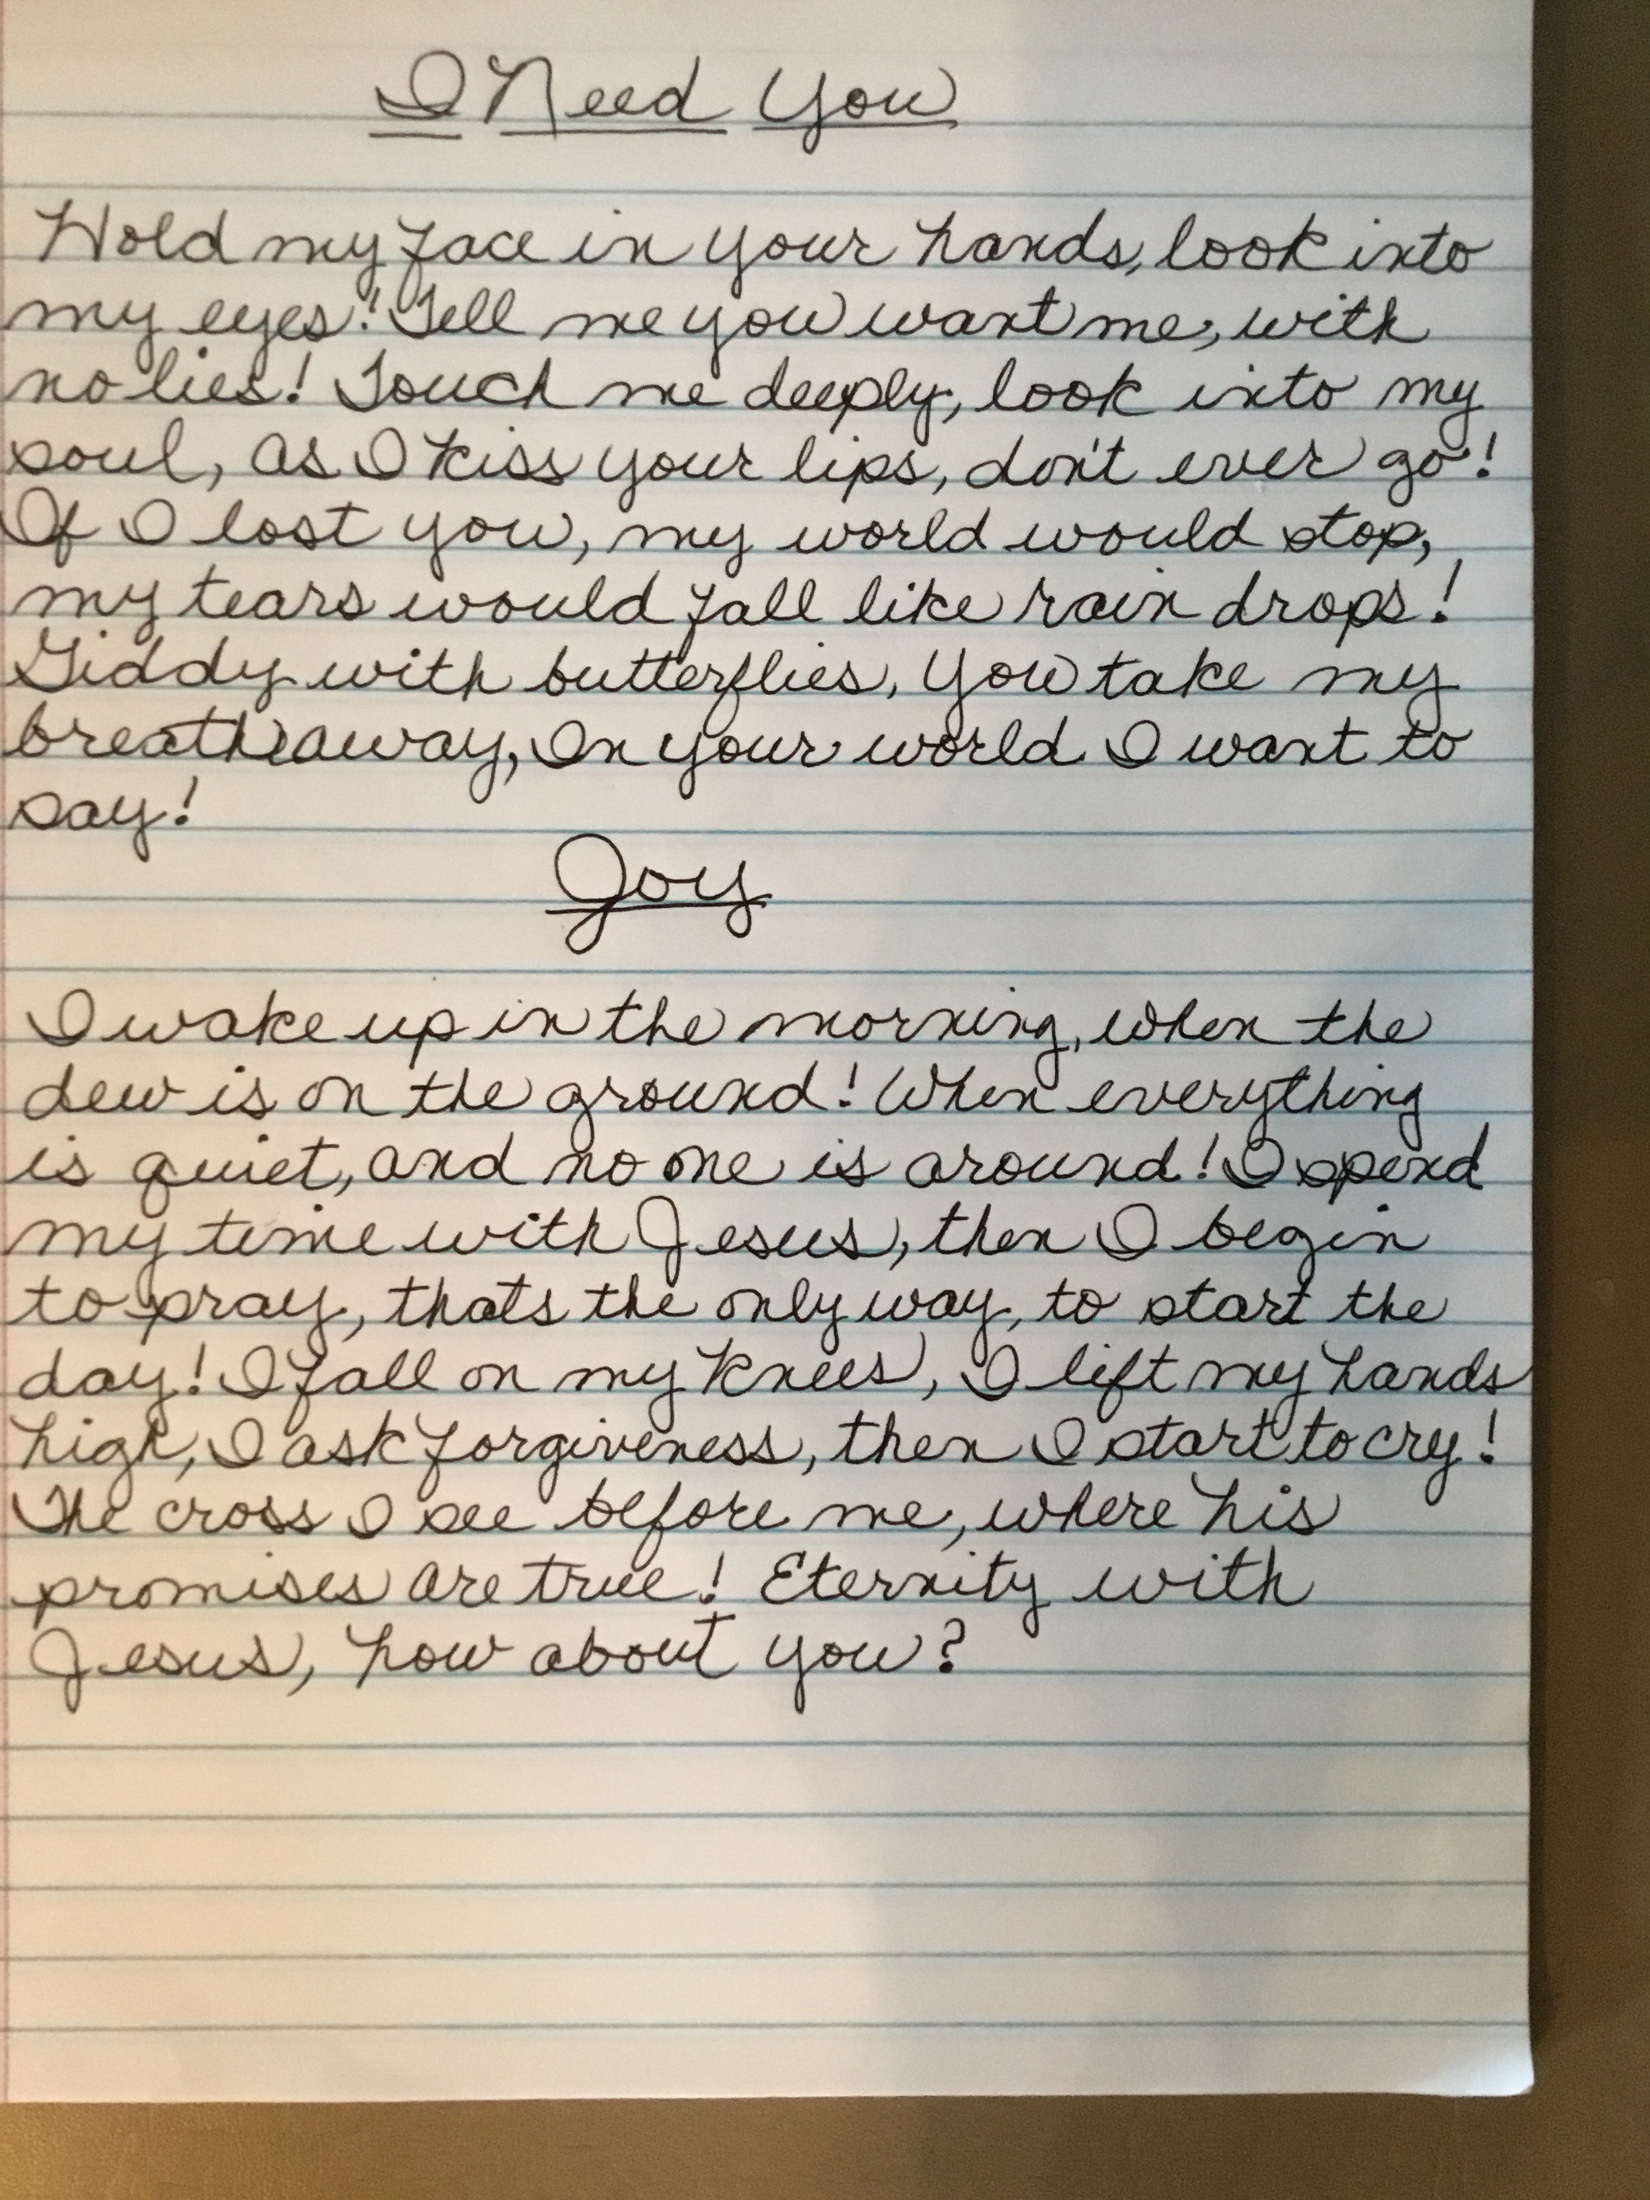 I Need You
Hold my face in your hands, look into
my eyes! Tell me you want me, with
no lies! Touch me deeply, look into my
soul, as I kiss your lips, don't ever go!
If I lost you, my world would stop,
my tears would fall like rain drops!
Giddy with butterflies, you take my
breath away, In your world I want to
say!
Joy
I wake up in the morning, when the
dew is on the ground! When everything
is quiet, and no one is around! I spend
my time with Jesus, then I begin
to pray, thats the only way, to start the
day! I fall on my knees, I lift my hands
high, I ask forgiveness, then I start to cry!
The cross I see before me, where his
promises are true! Eternity with
Jesus, how about you?